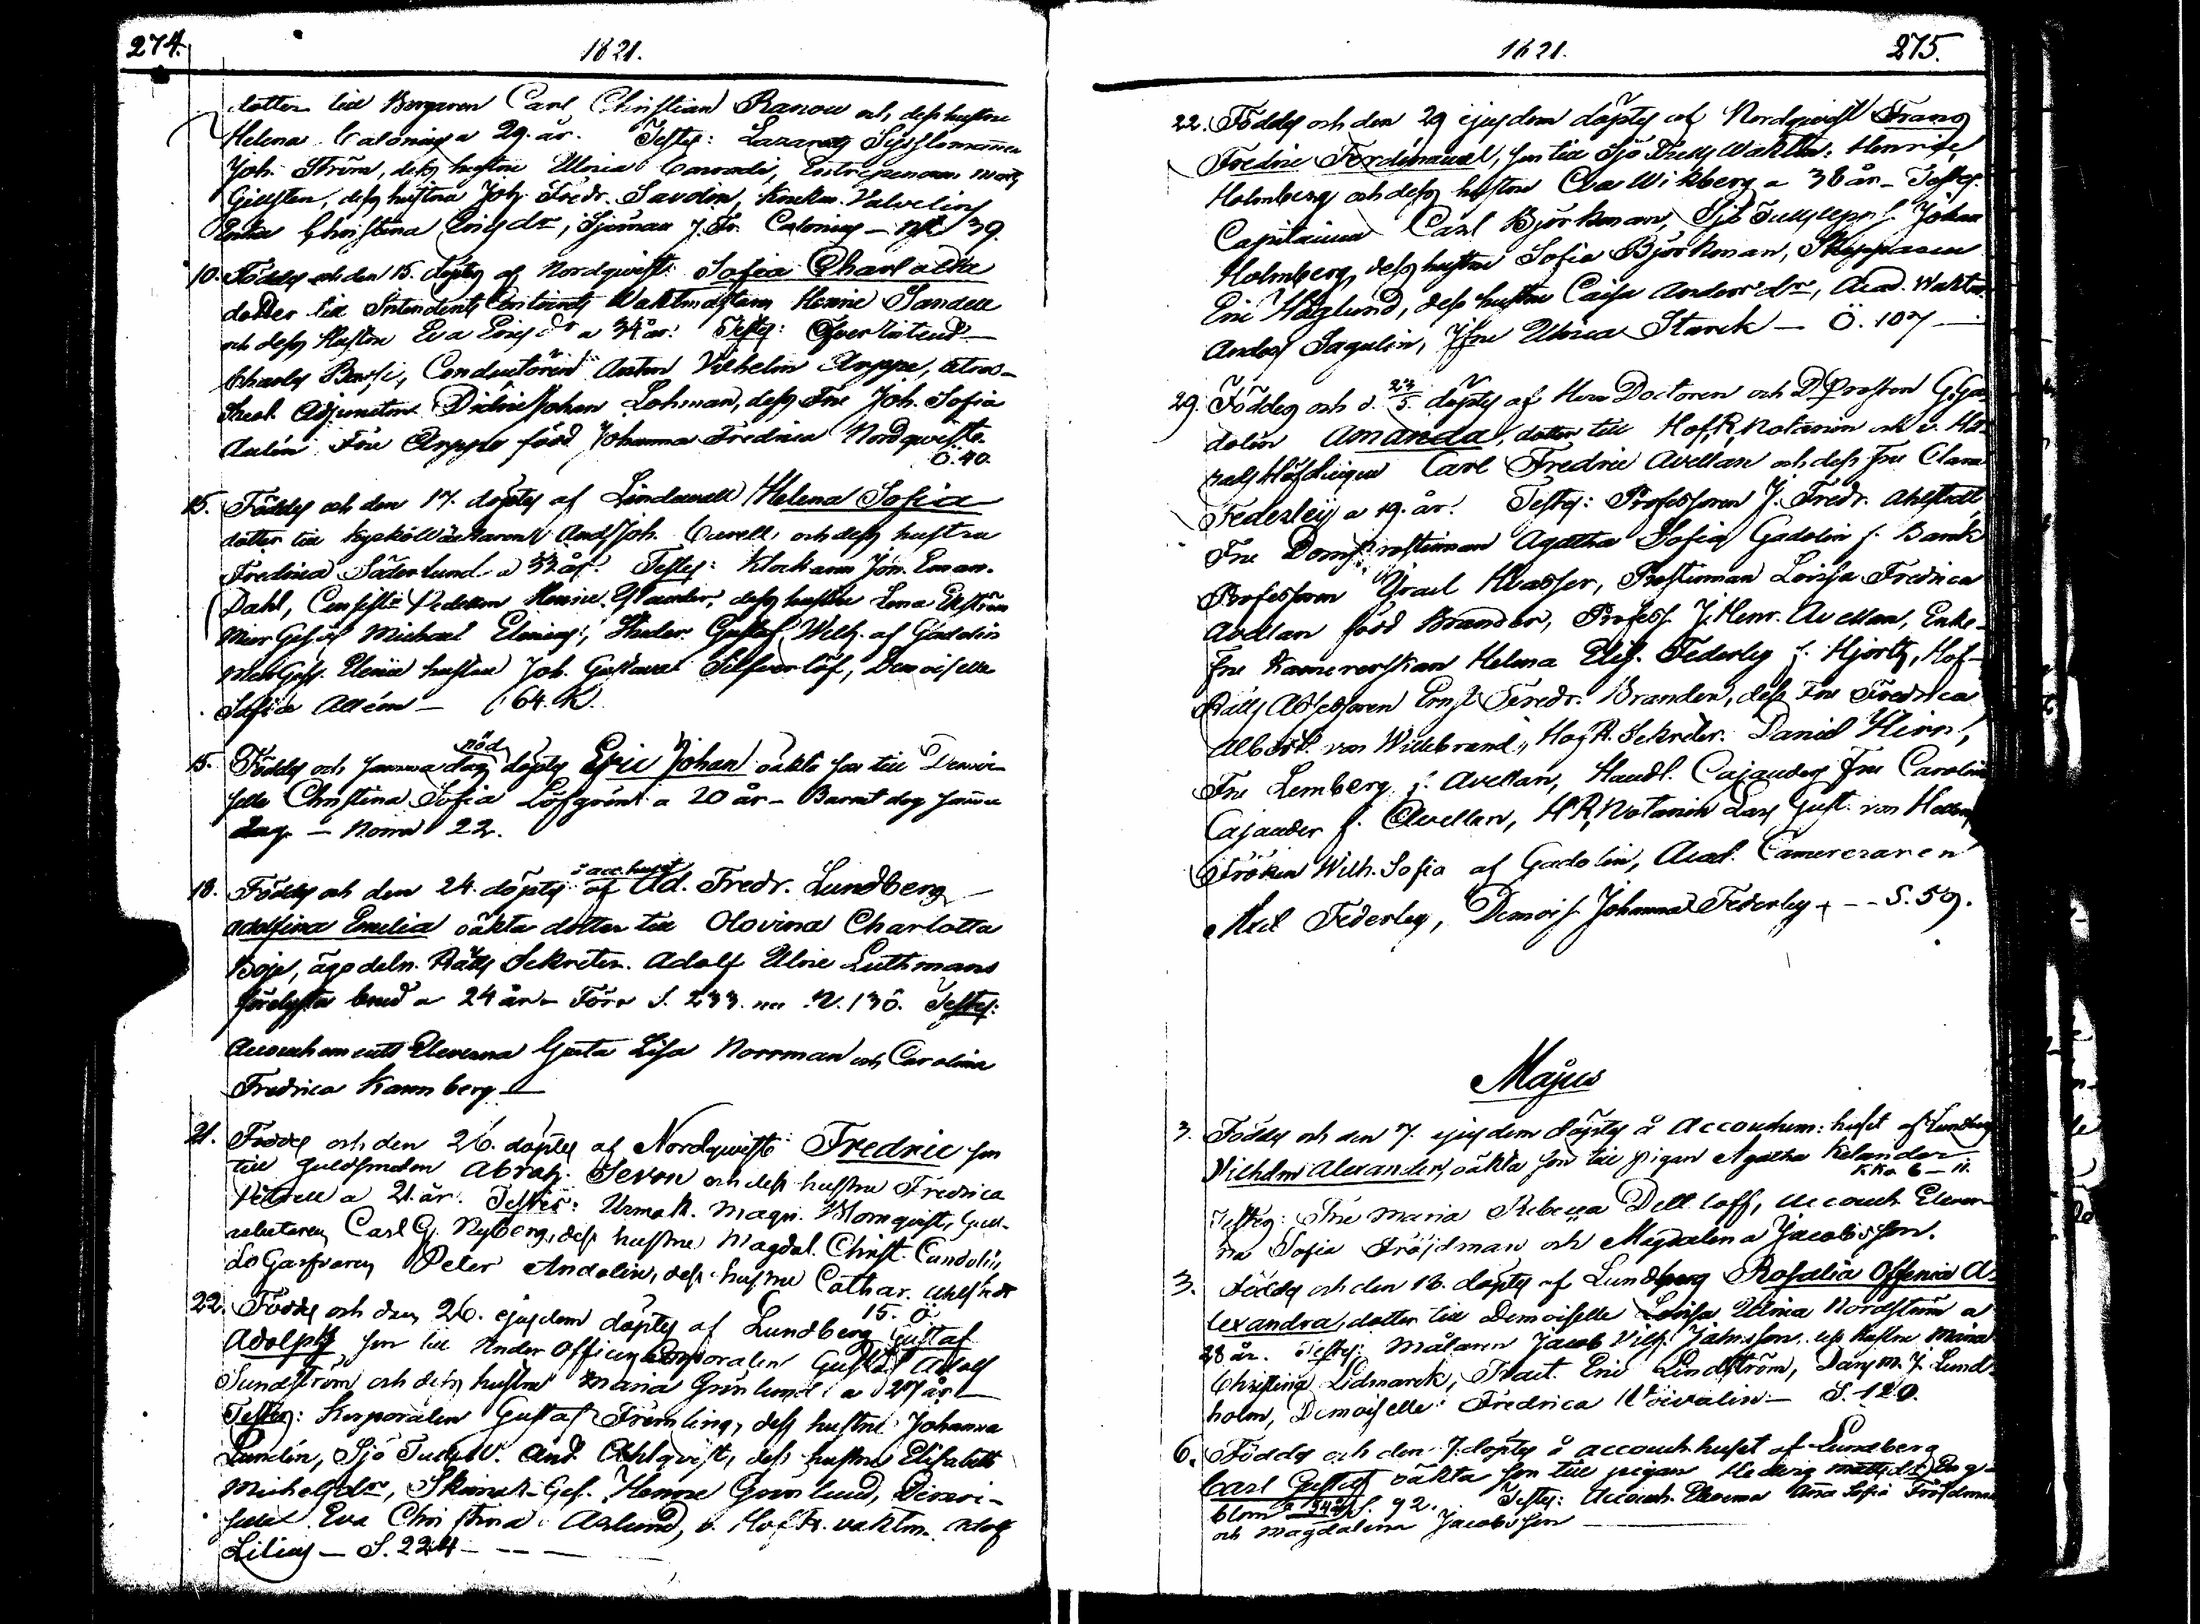 274.
1821.
dotter till Borgaren Carl Christian Ranou och dess hustru
Helena Calonius a 29. år. Testes: Lazaretts Sysslomannen
Joh. Ström, dess hustru Ulrica Conradi, Entrepenoren
Gillsten, dess hustru Joh. Fredr. Savdon, Valvelius
Enka Christina Ericsdr, Sjöman J. Fr. Calonius — 39.
10. Föddes och den 15. döptes af Nordqvist Sofia Charlotta
dotter till Intendents Contoirets Waktmästaren Henric Sandell
och dess Hustru Eva Ericsdr a 34 år. Testes: Öfver Intend—
Charles Bassi, Conducteuren Anton Vilhelm Arppe, Astro-
Adjuncten Didric Johan Lohman, dess Fru Joh. Sofia
Aulin Fru Arppe född Johanna Fredrica Nordqvist
Ö. 40.
15. Föddes och den 17. döptes af Lindewall Helena Sofia
dotter till And Joh. Cavell och dess hustru
Fredrica Söderlund a 32 år. Testes: Klockaren Joh. Eman.
Dahl, Consist. Pedellen Henric Glander, dess hustru Lena Ekström
Mur Ges. Michael Elenius, Studer. Gustaf Wilh. af Gadolin
Mur Ges. Elenii hustru Joh. Gustava Silfverlöf, Demoiselle
Sofia Allén — 64. K.
15. Föddes och samma dag nöd döptes Eric Johan oäkta son till Demoi-
selle Christina Sofia Löfgrén a 20 år — Barnet dog samma
dag. — Norra 22.
18. Föddes och den 24. döptes å acc. huset af Ad. Fredr. Lundberg
Adolfina Emelia oäkta dotter till Olovina Charlotta
Boje, ägodeln. Rätts Sekreter. Adolf Ulric Luthmans
förelysta brud a 24 år — Förr S. 233. nu N. 130. Testes:
Accouchements Eleverna Greta Lisa Norrman och Carolina
Fredrica Kannberg —
21. Föddes och den 26. döptes af Nordqvist Fredric son
till guldsmeden Abrah. Sevon och dess hustru Fredrica
a 21. år. Testes: Urmak. Magn. Blomqvist, Guld-
arbetaren Carl G. Nyberg, dess hustru Magdal. Christ. Cundolin,
Lo Garfvaren Peter Andelin, dess hustru Cathar. Ahlstedt
15. Ö
22. Föddes och den 26. ejusdem döptes af Lundberg Gustaf
Adolph son till Under Officeren Corporalen Gustaf Adolf
Sundström och dess hustru Maria Grönlund a 27 år —
Testes: Korporalen Gustaf Främling, dess hustru Johanna
Lundén, Sjö Tull V. And. Ahlqvist, dess hustru Elisabeth
Michelsdr, Skinnar Ges. Henric Grönlund, Demoi-
selle Eva Christina Aslund, v. HofR. vaktm. Adolf
Lilius — S. 224 — — —

1821.
275.
22. Föddes och den 29 ejusdem döptes af Nordqvist Frans
Fredric Ferdinand, son till Sjö Tulls Waktm: Henric
Holmberg och dess hustru Eva Wikberg a 38 år — Testes:
Capitainen Carl Björkman, Johan
Holmberg, dess hustru Sofia Björkman, Skepparen
Eric Höglund, dess hustru Caisa Andersdr, Acad. Waktm.
Anders Sagulin, Jfru Ulrica Starck — Ö. 107 —
29. Föddes och d. 23/5. döptes af Herr Doctoren och DProsten G. Ga-
dolin Amanda, dotter till HofR. Notarien och v. Hä-
radshöfdingen Carl Fredric Avellan och dess Fru Clara
Federley a 19. år. Testes: Professoren J. Fredr. Ahlstedt
Fru DomProstinnan Agatha Sofia Gadolin f. Banck
Professoren Israel Hwasser, Prostinnan Lovisa Fredrica
Avellan född Brander, Profess. J. Henr. Avellan, Enke-
Fru Kamererskan Helena Elis. Federley f. Hjortz, Hof-
Rätts Assessoren Ernst Fredr. Brander, dess Fru Fredrica
Albert. von Willebrand, HofR. Sekreter. Daniel Hirn,
Fru Lemberg f. Avellan, Handl. Cajanders Fru Carolina
Cajander f. Avellan, HR. Notarien Lars Gust. von
Fröken Wilh. Sofia af Gadolin, Acad. Camereraren
Axel Federley, Demois. Johanna Federley + — — S. 59.
Majus
3. Föddes och den 7. ejusdem döptes å Accouchem: huset af Lundberg
Vilhelm Alexander, oäkta son till pigan Agatha Kelander
K Ko 6 — 11.
Testes: Fru Maria Rebecca Dell loff, Accouch. Elever-
na Sofia Fröjdman och Magdalena Jacobsson.
3. Föddes och den 16. döptes af Lundberg Rosalia Offenia A-
lexandra, dotter till Demoiselle Lovisa Ulrica Nordström a
28 år. Testes: Målaren Jacob Vilh. Jahnsson dess hustru Maria
Christina Lidmarck, Trait. Eric Lindström, Dansm. J. Lund-
holm, Demoiselle Fredrica — S. 120.
6. Föddes och den 7. döptes å accouch. huset af Lundberg
Carl Gustaf oäkta son till pigan Hedvig Mattsdr Eng-
blom a 34 år S. 92. Testes: Accouch. Eleverna Anna Sofia Fröjdman
och Magdalena Jacobsson —